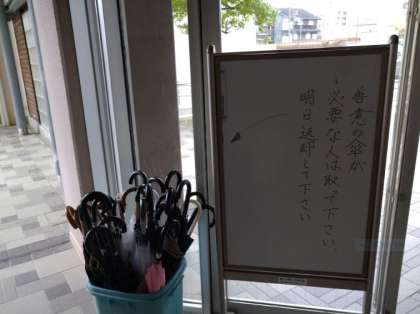 善意の傘が
必要な人は取って下さい、
明日返却して下さい